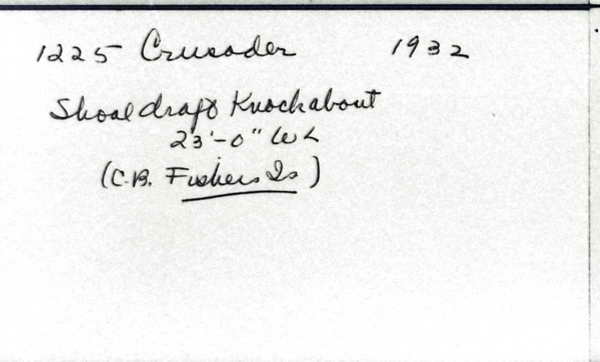 1225 Crusader 1932
Shoaldraft Knockabout
23'-0" WL
(C.B. Fishers Is)